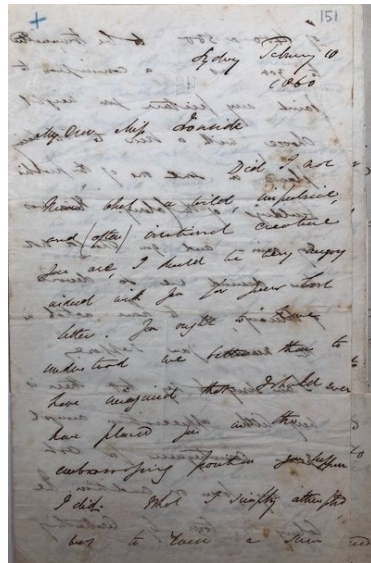 151
Sydney Febury 10
1860
My Dear Miss Ironside
Did I not
know what a wild, impulsive,
and (often) irrational creature
you are, I should be very angry
indeed with you for your last
letter. You ought to have
understood me better than to
have imagined that I should ever
have placed you in the
embarrassing position you suppose
I did. What I simply attempted
was to raise a sum